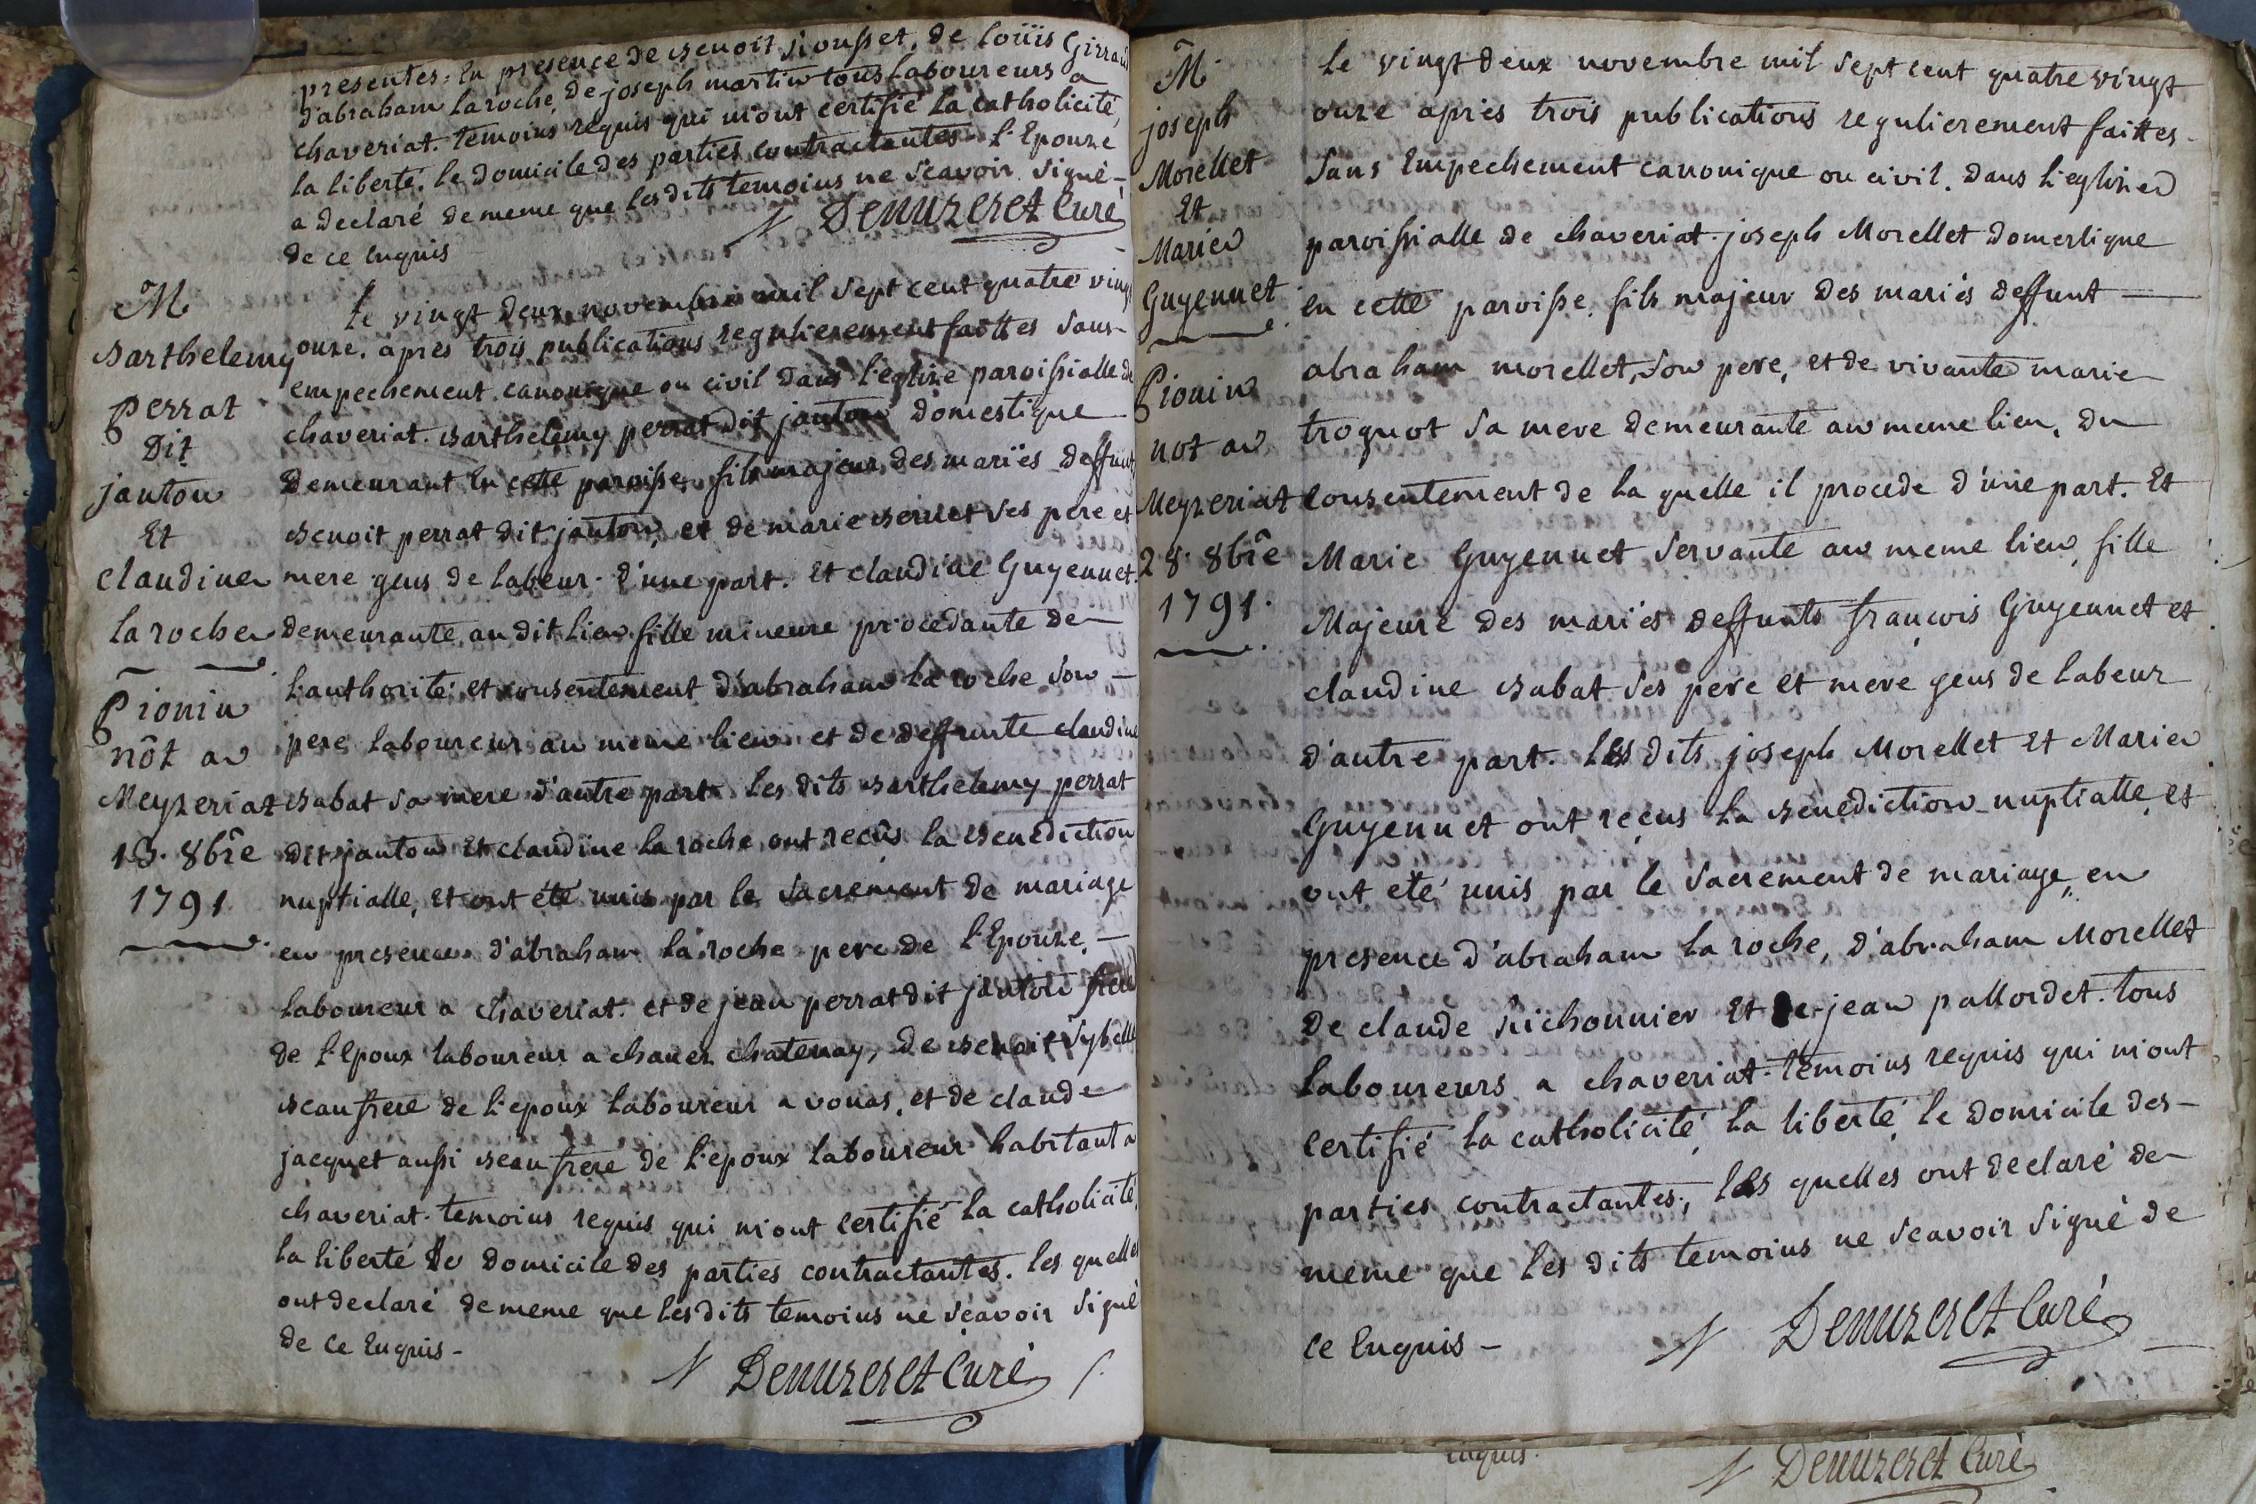 presentes. En presence de Benoit Jiousset, de Loüis Girraud
d'abraham Laroche, de joseph martin tous Laboureurs a
chaveriat. temoins requis qui m'ont certifié La catholicité,
La liberté. Le domicile des parties contractantes L'Epouze
a declaré de meme que Les dits temoins ne Scavoir Signé
de ce Enquis
N Demuzeret Curé
M
Barthelemy
perrat
dit
janton
Et
claudine
La roche
Pionin
nôt a
Meyzeriat
13. 8bre
1791
Le vingt deux novembre mil Sept cent quatre vingt
onze. apres trois publications regulierement faittes Sans
empechement canonique ou civil dans L'eglize paroissialle de
chaveriat. Barthelemy perrat dit janton domestique
demeurant En cette paroisse, fils majeur des mariés deffunt
Benoit perrat dit janton, et de marie Bernet Ses pere et
mere gens de Labeur. d'une part. Et claudine Guyennet
demeurante au dit Lieu fille mineure procedante de
L'authorité et consentement d'abraham La roche Son
pere Laboureur au meme lieu et de deffunte claudine
Babat Sa mere d'autre part. Les dits Barthelemy perrat
dit janton Et claudine La roche ont reçûs La Benediction
nuptialle, Et ont été unis par le Sacrement de mariage
en presence d'abraham La roche pere de L'Epouze,
Laboureur a chaveriat. et de jean perrat dit janton frere
de L'Epoux laboureur a chanez chatenay, de Benoit Sybelle
Beaufrere de L'epoux Laboureur a vonas. et de claude
jacquet aussi Beau frere de L'epoux Laboureur habitant a
chaveriat. temoins requis qui m'ont Certifié La catholicité,
La liberté Le domicile des parties contractantes. Les quelles
ont declaré de meme que Les dits temoins ne Scavoir Signé
de Ce Enquis-
N Demuzeret Curé
M
joseph
Morellet
Et
Marie
Guyennet
Pionin
not a
Meyzeriat
28. 8bre
1791.
Le vingt deux novembre mil Sept cent quatre vingt
onze après trois publications regulierement faittes
Sans Empechement canonique ou civil. dans L'eglize
paroissialle de chaveriat. joseph Morellet domestique
en cette paroisse. fils majeur des mariés deffunt
abraham morellet, Son pere, et de vivante marie
troquot Sa mere demeurante au meme lieu, du
Consentement de La quelle il procede d'une part. Et
Marie Guyennet Servante au meme lieu, fille
Majeure des mariés deffunts françois Guyennet et
claudine Babat Ses pere et mere gens de Labeur
d'autre part. Les dits joseph Morellet Et Marie
Guyennet ont reçus La Benediction nuptialle, et
ont eté unis par le Sacrement de mariage, en
presence d'abraham La roche, d'abraham Morellet
De claude Michonnier Et de jean pallordet. tous
Laboureurs a chaveriat. temoins requis qui m'ont
Certifié La catholicité, La liberté, le domicile des
parties contractantes, Les quelles ont declaré de
meme que Les dits temoins ne Scavoir Signé de
Ce Enquis-
N Demuzeret Curé
Enquis.
N Demuzeret Curé